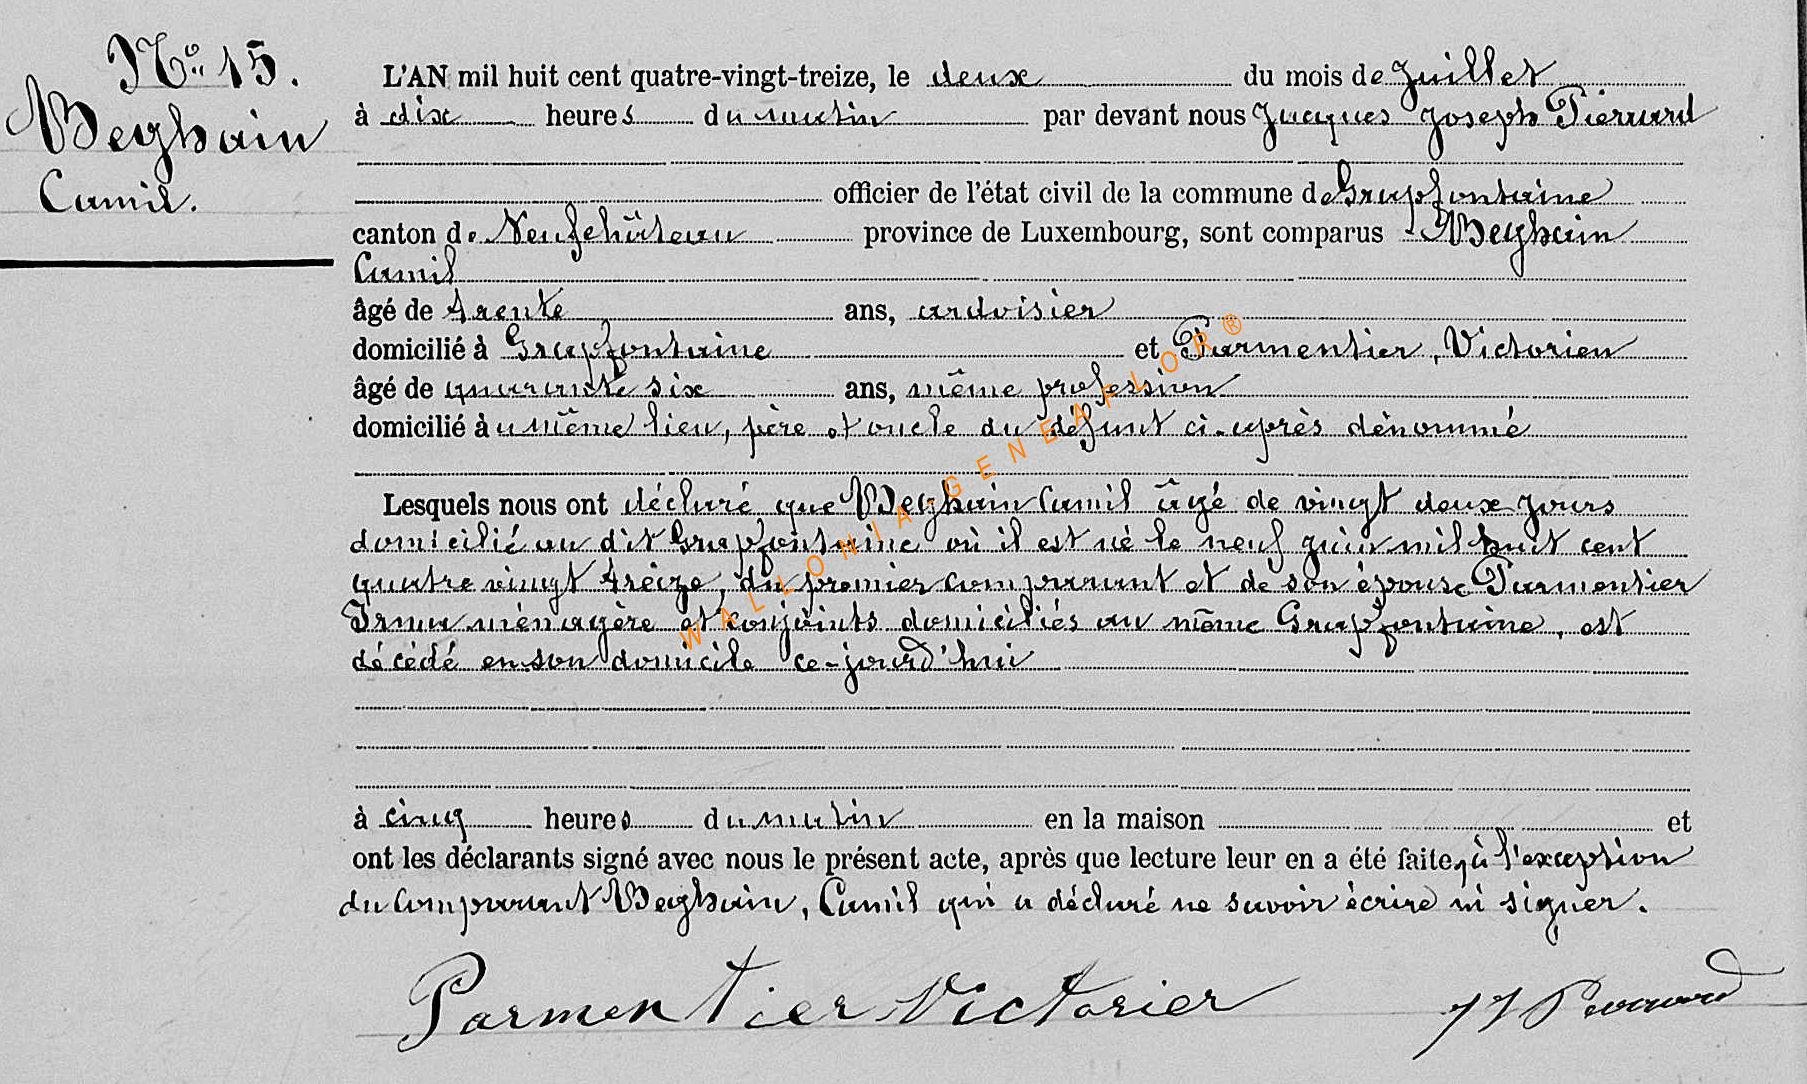 N° 15.
Beghain
Camil.
L'AN mil huit cent quatre-vingt-treize, le deux du mois de Juillet
à dix heures du matin par devant nous Jacques Joseph Pierrard
officier de l'état civil de la commune de Grapfontaine
canton de Neufchâteau province de Luxembourg, sont comparus Beghain
Camil
âgé de trente ans, ardoisier
domicilié à Grapfontaine et Parmentier, Victorien
âgé de quarante six ans, même profession
domicilié à u même lieu, père et oncle du défunt ci-après dénommé
Lesquels nous ont déclaré que Beghain Camil âgé de vingt deux jours
domicilié au dit Grapfontaine où il est né le neuf juin mil huit cent
quatre vingt treize, du premier comparant et de son épouse Parmentier
Irma ménagère et conjoints domiciliés au même Grapfontaine, est
décédé en son domicile ce-jourd'hui
à cinq heures du matin en la maison et
ont les déclarants signé avec nous le présent acte, après que lecture leur en a été faite, à l'exception
du comparant Beghain, Camil qui a déclaré ne savoir écrire ni signer.
Parmentier Victorier
JJ Pierrard
WALLONIA-GENEAFLOR®